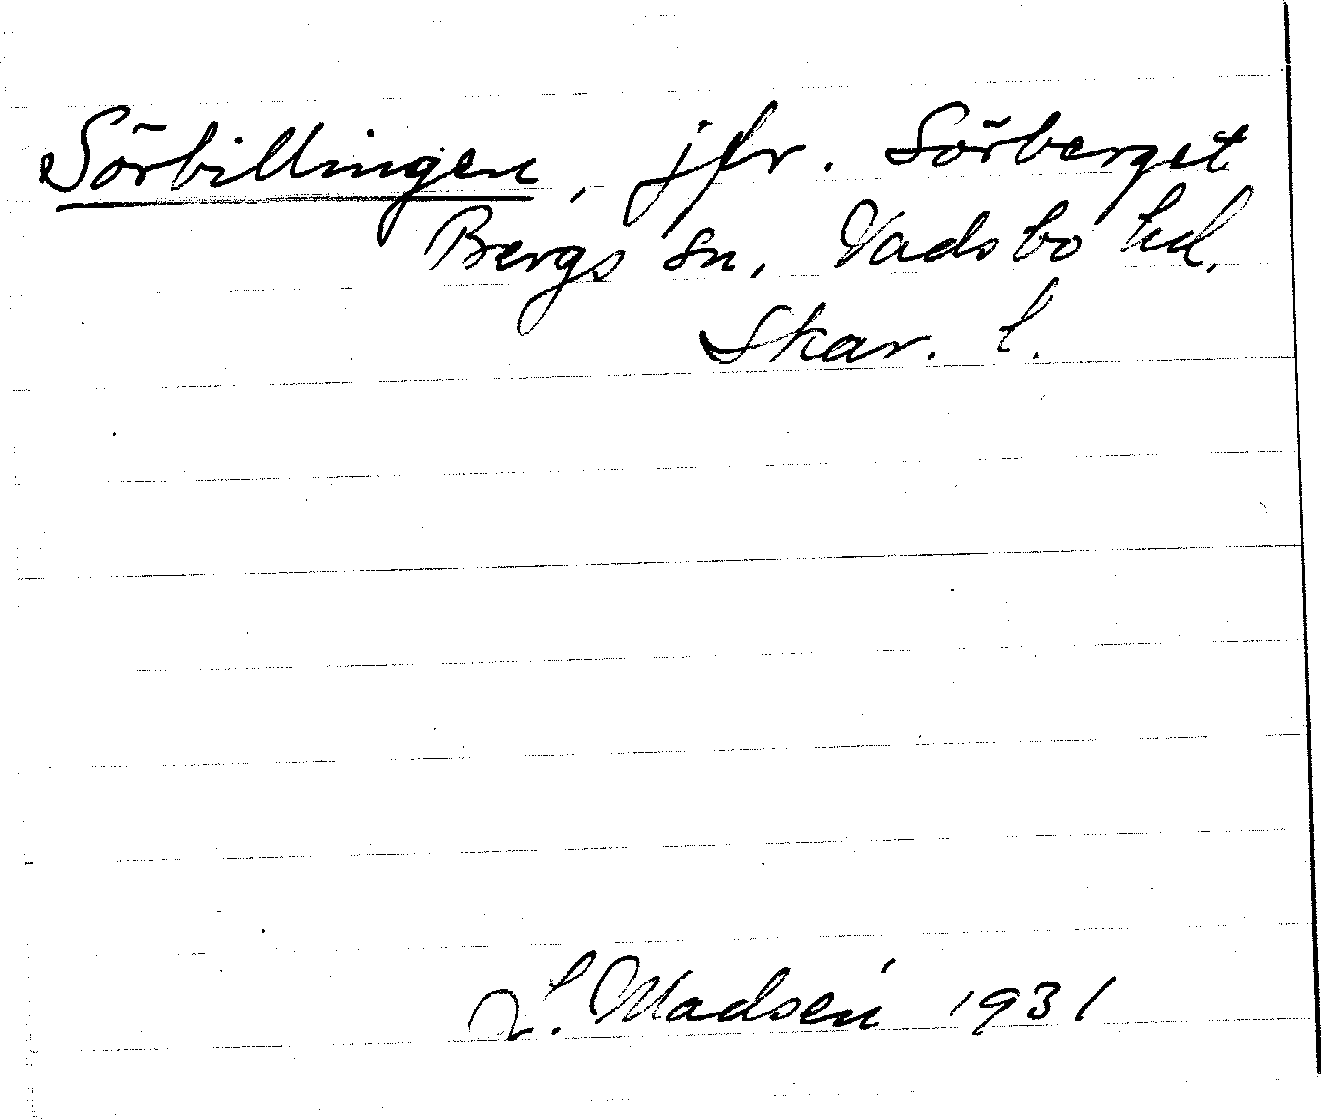 Sörbillingen, jfr. Sörberget
Bergs sn, Vadsbo hd,
Skar. l.
L. Madsén 1931